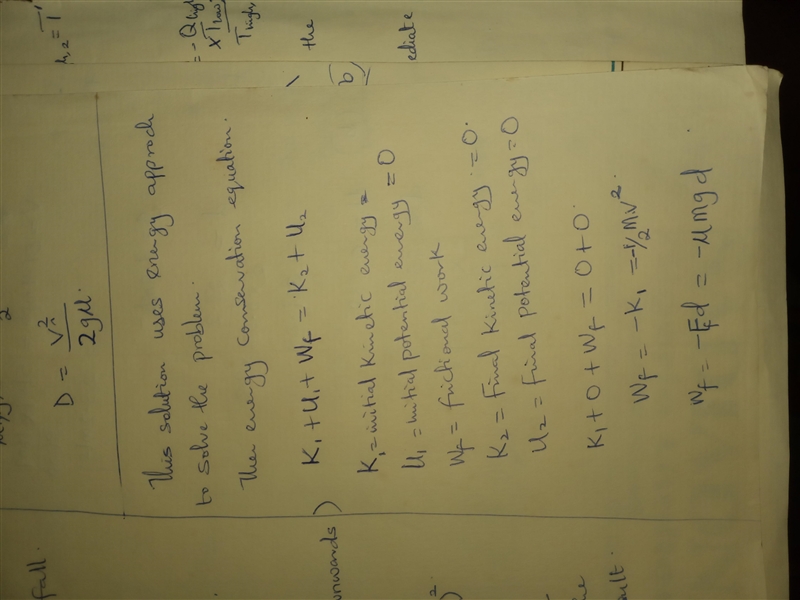 D = v²/2gμ.
This solution uses energy approch
to solve the problem.
Then energy conservation equation.
K₁ + U₁ + Wf = K₂ + U₂
K₁ = initial kinetic energy =
U₁ = initial potential energy = 0
Wf = frictional work
K₂ = Final kinetic energy = 0.
U₂ = Final potential energy = 0
K₁ + 0 + Wf = 0 + 0.
Wf = -K₁ = -1/2 mv².
Wf = -Ffd = -μmgd.
fall.
the
b)
ediate